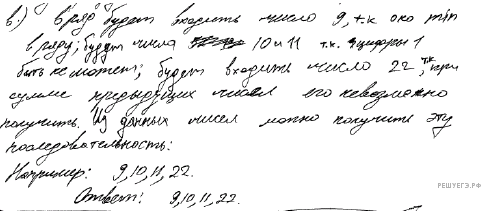 в.) В ряд будет входить число 9, т.к оно min
в ряду; будут числа 10 и 11 т.к. цифры 1
быть не может; будет входить число 22, т.к при
сумме предыдущих чисел его невозможно
получить. Из данных чисел можно получить эту
последовательность:
Например: 9,10,11,22.
Ответ: 9,10,11,22.
РЕШУЕГЭ.РФ